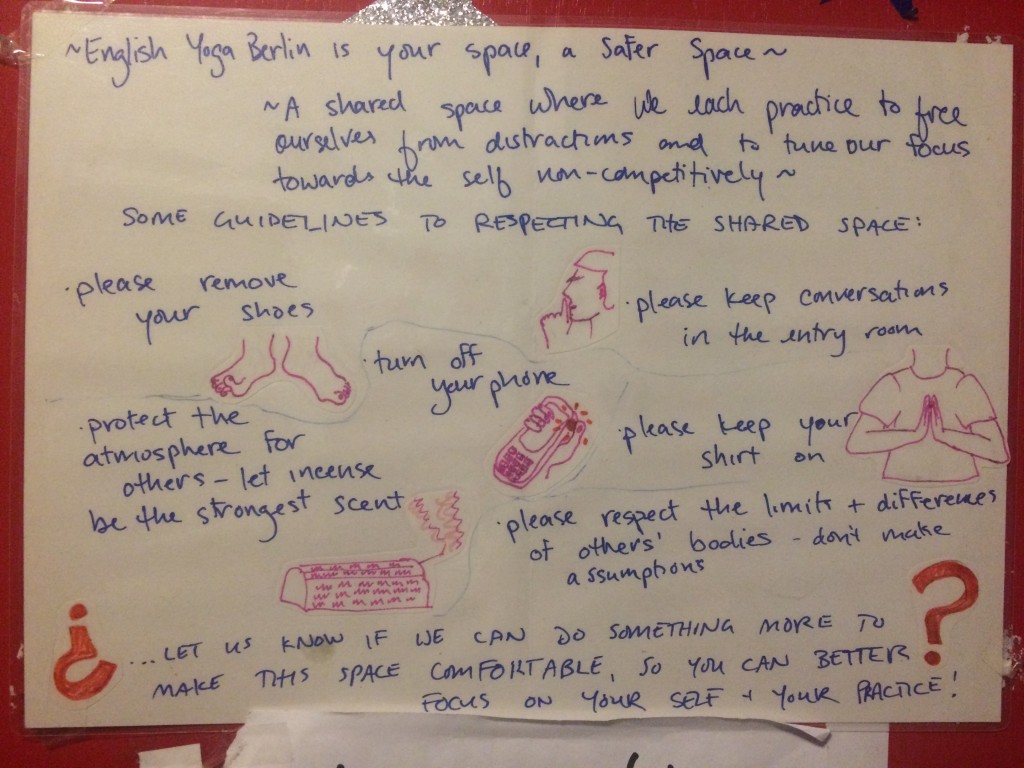 ~English Yoga Berlin is your space, a Safer Space~
~A shared space where we each practice to free
ourselves from distractions and to tune our focus
towards the self non-competitively~
SOME GUIDELINES TO RESPECTING THE SHARED SPACE:
·please remove
your shoes
·please keep conversations
in the entry room
·turn off
your phone
·protect the
atmosphere for
others - let incense
be the strongest scent
·please keep your
shirt on
·please respect the limits + differences
of others' bodies - don't make
assumptions
¿ ...LET US KNOW IF WE CAN DO SOMETHING MORE TO ?
MAKE THIS SPACE COMFORTABLE, SO YOU CAN BETTER
FOCUS ON YOUR SELF + YOUR PRACTICE!